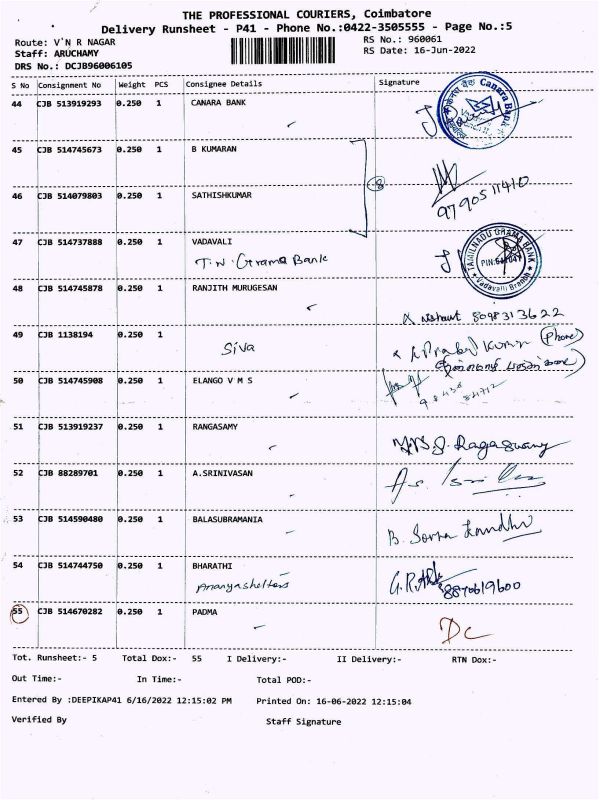 THE PROFESSIONAL COURIERS, Coimbatore
Delivery Runsheet - P41 - Phone No.:0422-3505555 - Page No.:5
Route: V'N R NAGAR RS No.: 960061
Staff: ARUCHAMY RS Date: 16-Jun-2022
DRS No.: DCJB96006105
S No Consignment No Weight PCS Consignee Details Signature
44 CJB 513919293 0.250 1 CANARA BANK
Canara Bank
45 CJB 514745673 0.250 1 B KUMARAN
8
46 CJB 514079803 0.250 1 SATHISHKUMAR
9790511410
47 CJB 514737888 0.250 1 VADAVALI
T.N. Grama Bank
TAMILNADU GRAMA BANK
Vadavalli Branch
48 CJB 514745878 0.250 1 RANJITH MURUGESAN
8098313622
49 CJB 1138194 0.250 1
Siva
(Phone)
50 CJB 514745908 0.250 1 ELANGO V M S
51 CJB 513919237 0.250 1 RANGASAMY
52 CJB 88289701 0.250 1 A.SRINIVASAN
53 CJB 514590480 0.250 1 BALASUBRAMANIA
54 CJB 514744750 0.250 1 BHARATHI
Ananyashelters
8870619600
55 CJB 514670282 0.250 1 PADMA
DC
Tot. Runsheet:- 5 Total Dox:- 55 I Delivery:- II Delivery:- RTN Dox:-
Out Time:- In Time:- Total POD:-
Entered By :DEEPIKAP41 6/16/2022 12:15:02 PM Printed On: 16-06-2022 12:15:04
Verified By Staff Signature